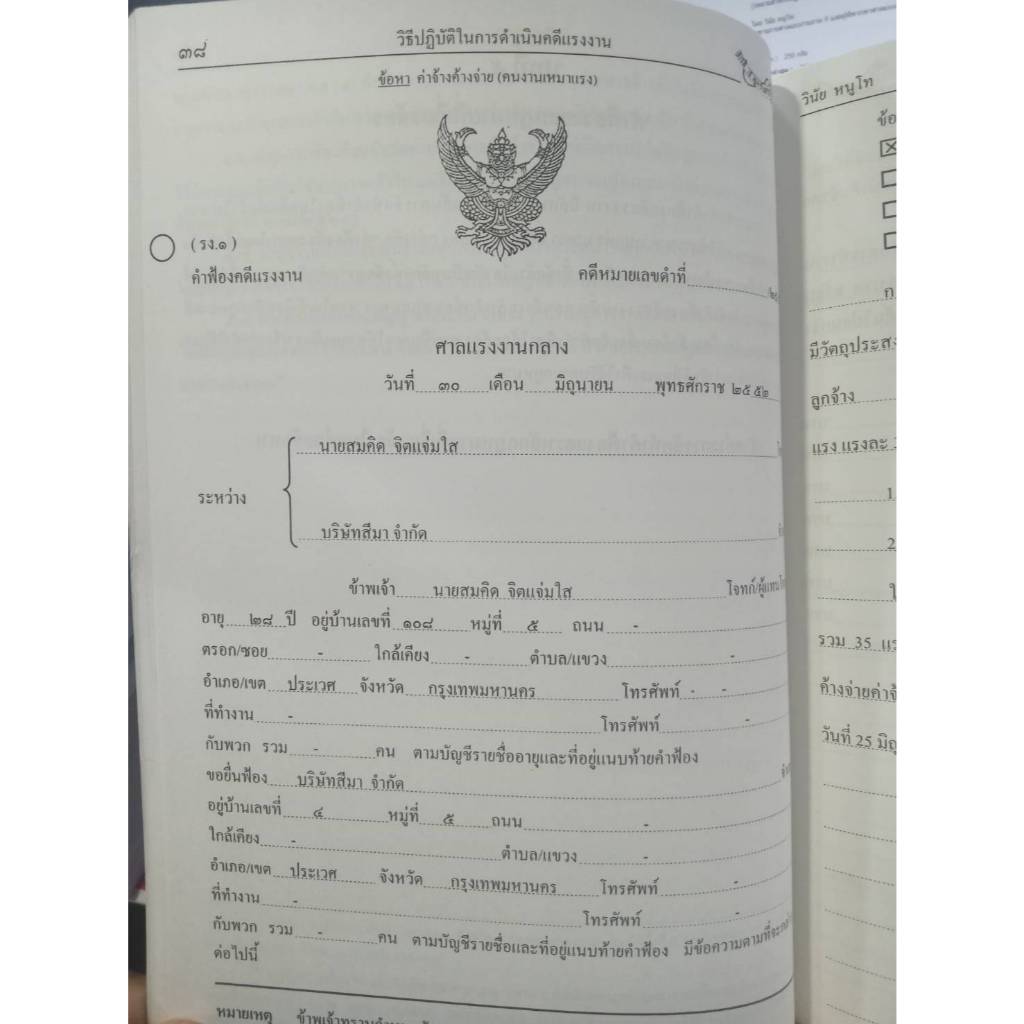 ๓๘ วิธีปฏิบัติในการดำเนินคดีแรงงาน
ข้อหา ค่าจ้างค้างจ่าย (คนงานเหมาแรง)
( รง.๑ )
คำฟ้องคดีแรงงาน คดีหมายเลขดำที่
ศาลแรงงานกลาง
วันที่ ๓๐ เดือน มิถุนายน พุทธศักราช ๒๕๕๒
นายสมคิด จิตแจ่มใส
ระหว่าง
บริษัทสีมา จำกัด
ข้าพเจ้า นายสมคิด จิตแจ่มใส โจทก์/ผู้แทน
อายุ ๒๘ ปี อยู่บ้านเลขที่ ๑๐๘ หมู่ที่ ๕ ถนน -
ตรอก/ซอย - ใกล้เคียง - ตำบล/แขวง -
อำเภอ/เขต ประเวศ จังหวัด กรุงเทพมหานคร โทรศัพท์ - -
ที่ทำงาน - โทรศัพท์ -
กับพวก รวม - คน ตามบัญชีรายชื่ออายุและที่อยู่แนบท้ายคำฟ้อง
ขอยื่นฟ้อง บริษัทสีมา จำกัด
อยู่บ้านเลขที่ ๔ หมู่ที่ ๕ ถนน -
ใกล้เคียง - ตำบล/แขวง -
อำเภอ/เขต ประเวศ จังหวัด กรุงเทพมหานคร โทรศัพท์ -
ที่ทำงาน - โทรศัพท์ -
กับพวก รวม - คน ตามบัญชีรายชื่อและที่อยู่แนบท้ายคำฟ้อง มีข้อความตามที่จะ
ต่อไปนี้
หมายเหตุ ข้าพเจ้า
วินัย หนูโท
ข้อ
ก
มีวัตถุประสง
ลูกจ้าง
แรง แรงละ
1
2
ใ
รวม 35 แร
ค้างจ่ายค่าจ้
วันที่ 25 มิถุ